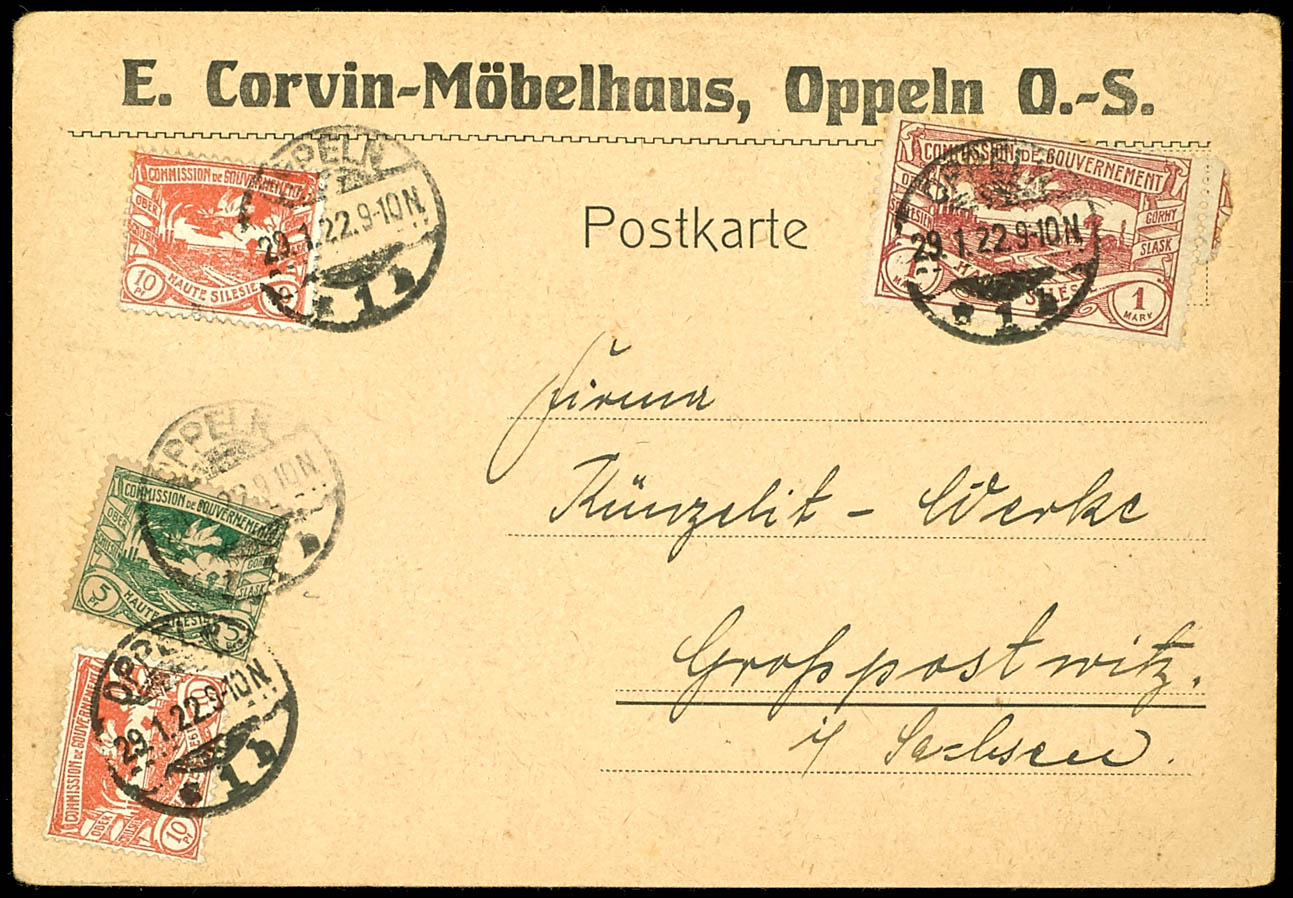 E. Corvin-Möbelhaus, Oppeln O.-S.
Postkarte
COMMISSION DE GOUVERNEMENT
OBER
10 Pf
HAUTE SILESIE
OPPELN
29.1.22.9-10N
* 1 b
COMMISSION DE GOUVERNEMENT
OBER
GORNY
SLASK
1 MARK
29.1.22.9-10N
* 1 b
Firma
Künzelit - Werke
Großpostwitz.
i/ Sachsen
OPPELN
22.9-10N
COMMISSION DE GOUVERNEMENT
OBER
SCHLESIEN
GORNY
SLASK
5 Pf
HAUTE SILESIE
5
OPPELN
29.1.22.9-10N
* 1 b
COMMISSION DE GOUVERNEMENT
OBER
10 Pf